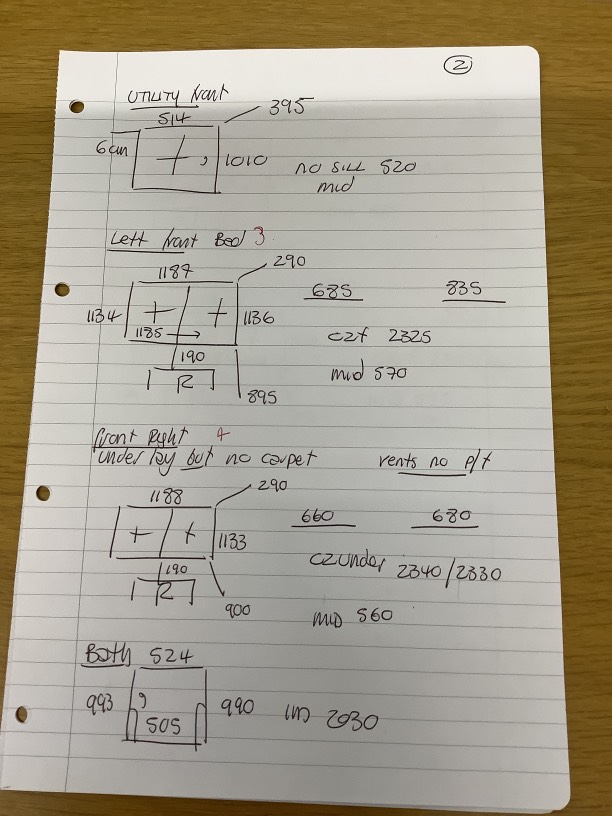 2
UTILITY front
514
395
6cm
1010
no sill 520
mid
Left front Bed 3
1187
290
685
835
1134
1136
1185
c2f 2325
190
mid 570
R
895
front Right 4
under lay but no carpet
vents no p/t
1188
290
660
680
1133
190
c2under 2340/2330
R
900
mid 560
Bath 524
993
990
505
2030